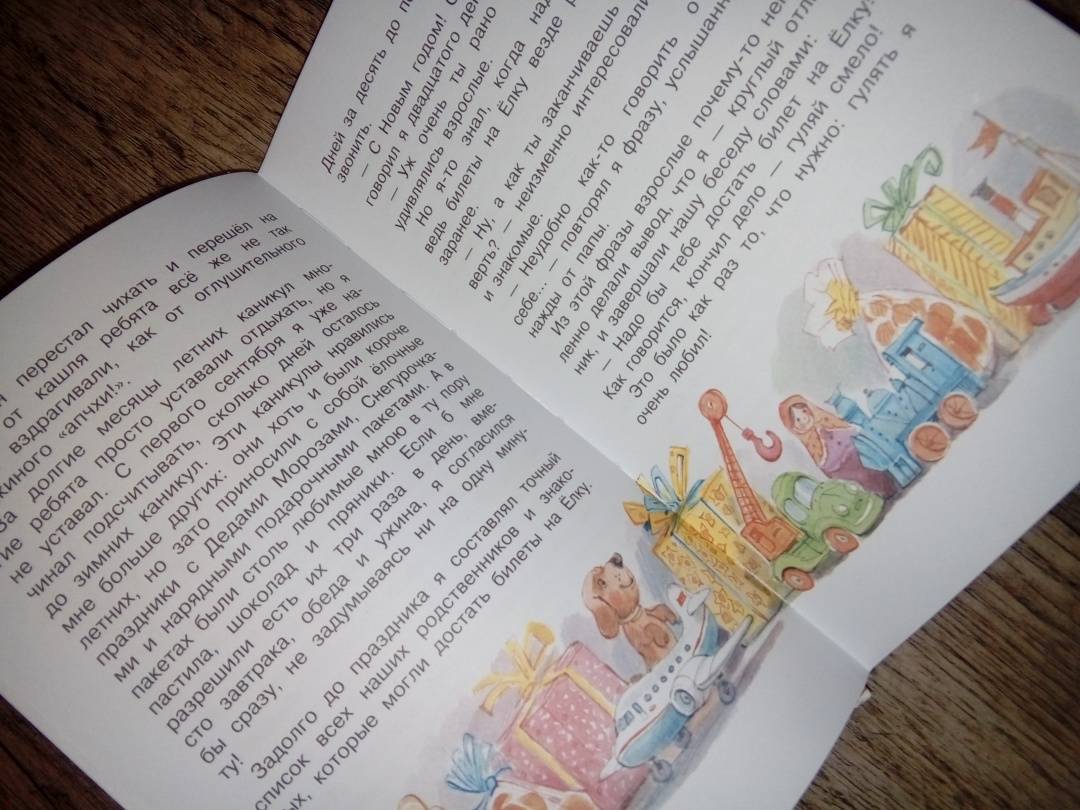 перестал чихать и перешёл на
от кашля ребята всё же не так
вздрагивали, как от оглушительного
«апчхи!».
долгие месяцы летних каникул мно-
гие ребята просто уставали отдыхать, но я
не уставал. С первого сентября я уже на-
чинал подсчитывать, сколько дней осталось
до зимних каникул. Эти каникулы нравились
мне больше других: они хоть и были короче
летних, но зато приносили с собой ёлочные
праздники с Дедами Морозами, Снегурочка-
ми и нарядными подарочными пакетами. А в
пакетах были столь любимые мною в ту пору
пастила, шоколад и пряники. Если б мне
разрешили есть их три раза в день, вме-
сто завтрака, обеда и ужина, я согласился
бы сразу, не задумываясь ни на одну мину-
ту!
Задолго до праздника я составлял точный
список всех наших родственников и знако-
мых, которые могли достать билеты на Ёлку.
Дней за десять до
звонить.
— С Новым годом! С
говорил я двадцатого
— Уж очень ты рано
удивлялись взрослые.
Но я-то знал, когда
ведь билеты на Ёлку везде
заранее.
— Ну, а как ты заканчиваешь
верть? — неизменно интересовали
и знакомые.
— Неудобно как-то говорить о
себе... — повторял я фразу, услышан
нажды от папы.
Из этой фразы взрослые почему-то
ленно делали вывод, что я — круглый отли
ник, и завершали нашу беседу словами:
— Надо бы тебе достать билет на Ёлку!
Как говорится, кончил дело — гуляй смело!
Это было как раз то, что нужно: гулять я
очень любил!